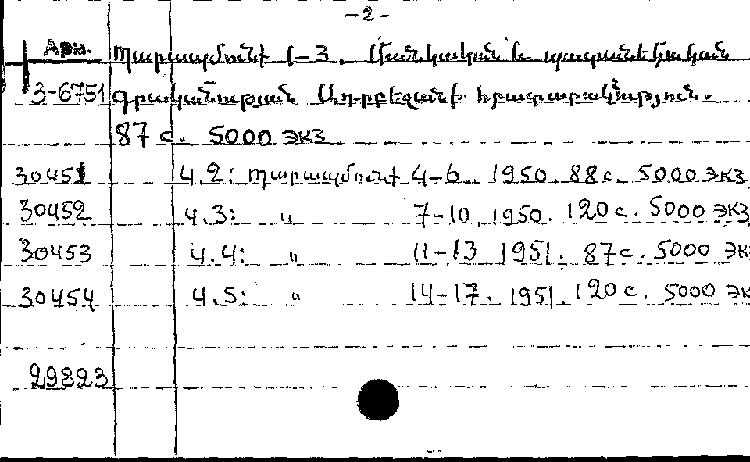 -2-
Арм. Պարապմունք 1-3. Մանկական և պատանեկական
3-6751 գրականության Ադրբեջանի հրատարակչություն.
87 с. 5000 экз
30451 Ч.2: Պարապմունք 4-6. 1950. 88 с. 5000 экз
30452 Ч.3: " 7-10, 1950. 120 с. 5000 экз
30453 Ч.4: " 11-13 1951. 87 с. 5000 эк
30454 Ч.5: " 14-17. 1951. 120 с. 5000 эк
29823